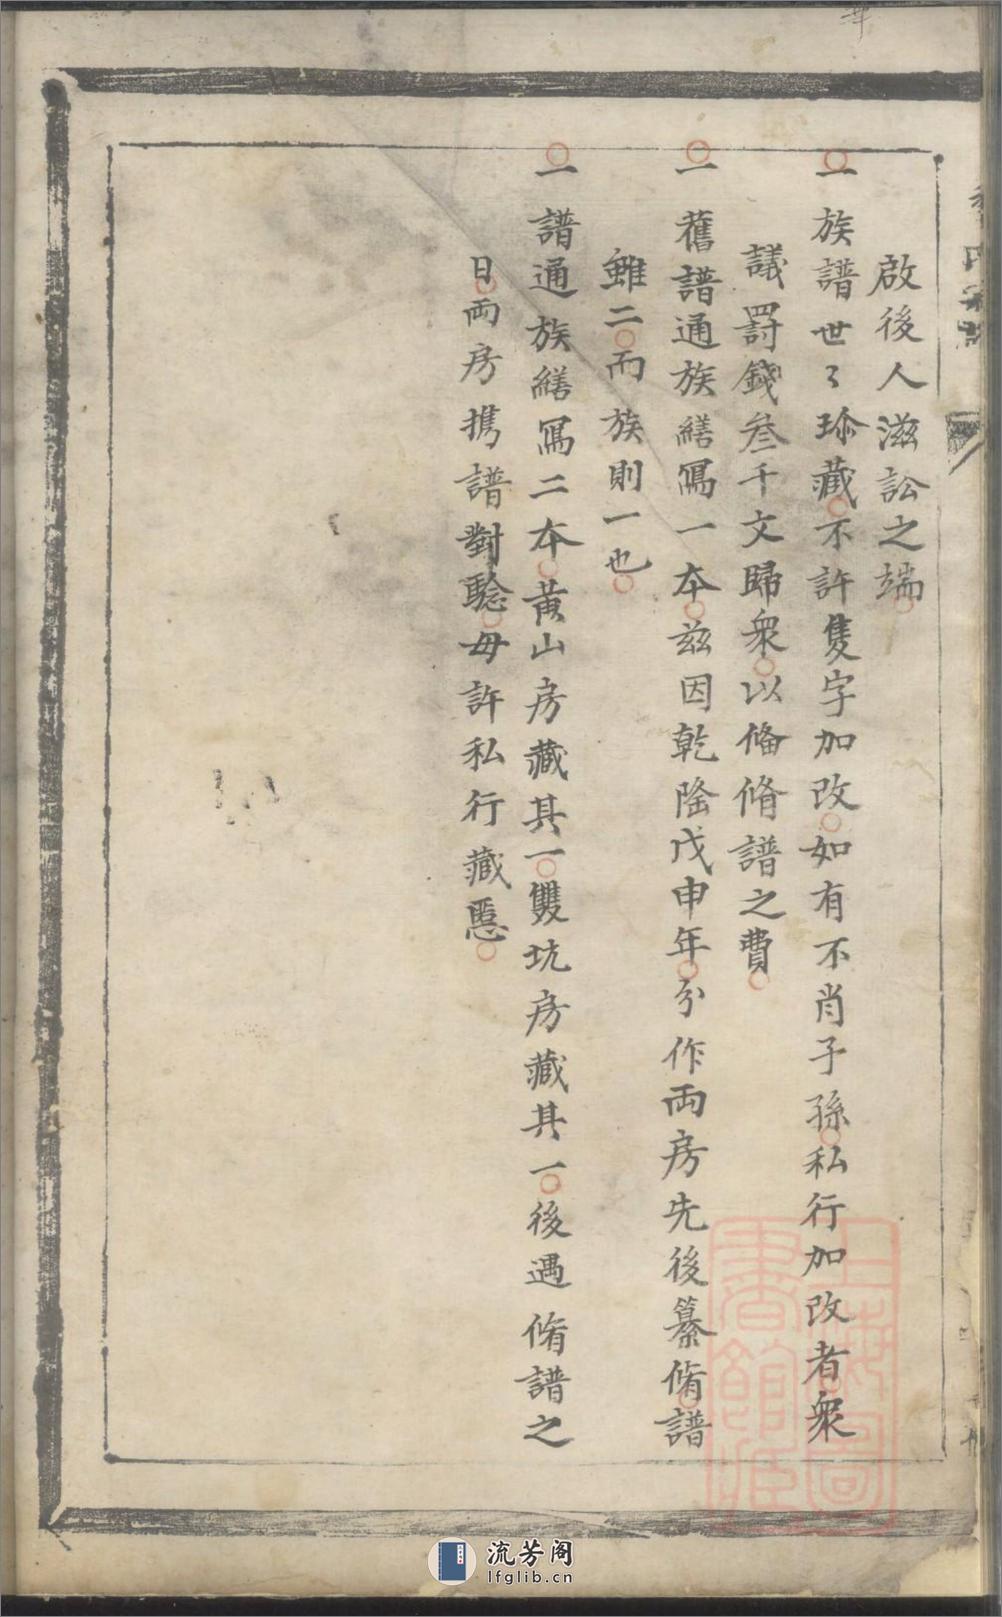 啟後人滋訟之端
一族譜世々珎藏不許隻字加改如有不肖子孫私行加改者衆
議罸錢叁千文歸衆以俻脩譜之費
一舊譜通族繕寫一本兹因乾隆戊申年分作兩房先後纂脩譜
雖二而族則一也
一譜通族繕寫二本黄山房藏其一雙坑房藏其一後遇脩譜之
日兩房携譜對騐毋許私行藏慝
上海圖
書館藏
流芳阁
lfglib.cn